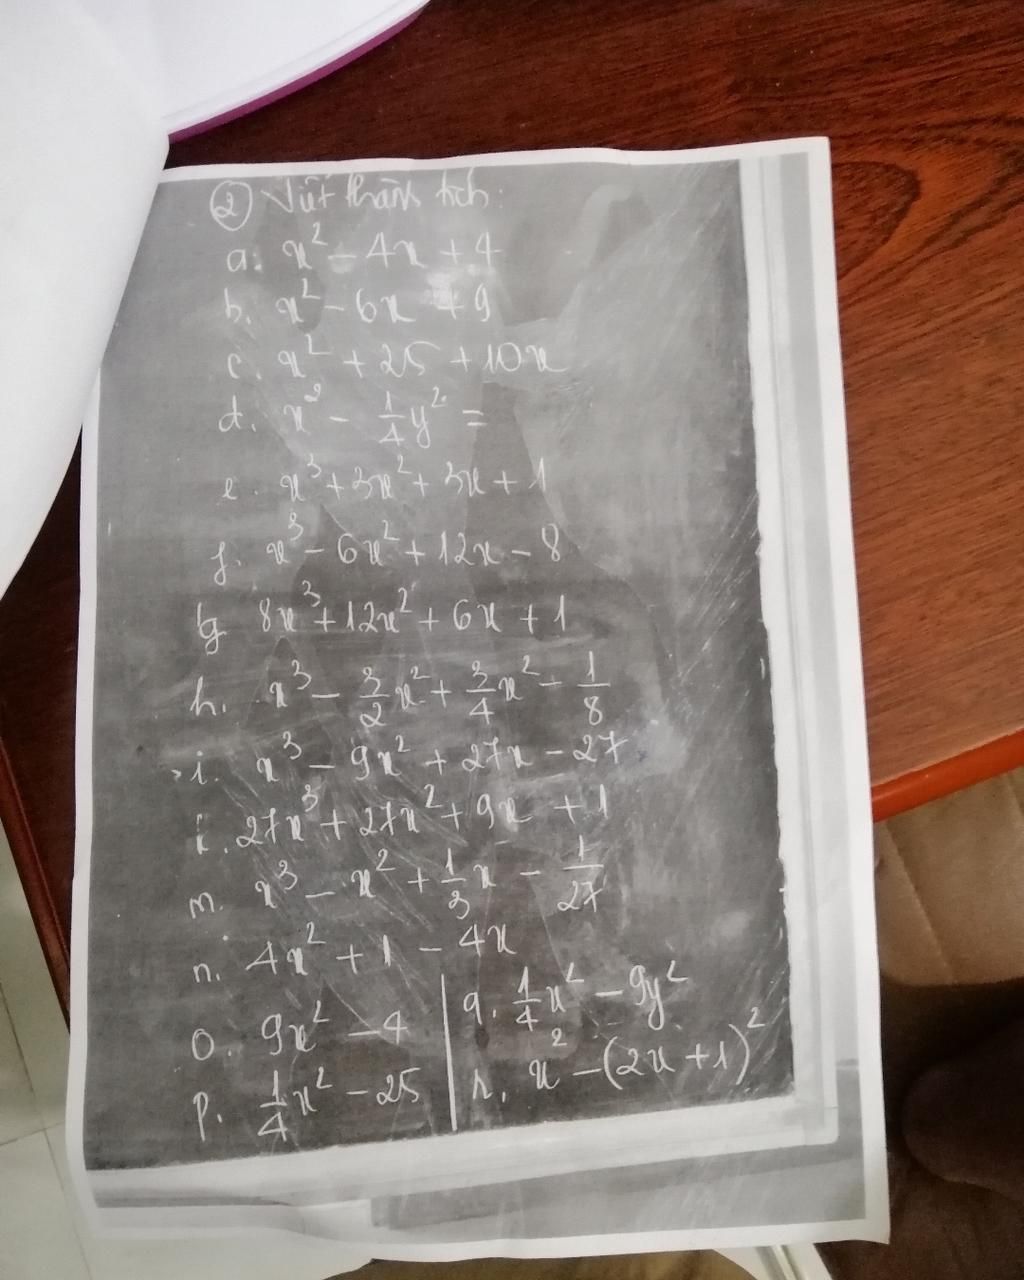 ② Viết thành tích:
a. x² - 4x + 4
b. x² - 6x + 9
c. x² + 25 + 10x
d. x² - 1/4 y² =
e. x³ + 3x² + 3x + 1
f. x³ - 6x² + 12x - 8
g 8x³ + 12x² + 6x + 1
h. x³ - 3/2 x² + 3/4 x² - 1/8
i. x³ - 9x² + 27x - 27
k. 27x³ + 27x² + 9x + 1
m. x³ - x² + 1/3 x - 1/27
n. 4x² + 1 - 4x
o. 9x² - 4
p. 1/4 x² - 25
q. 1/4 x² - 9y²
r. x² - (2x + 1)²